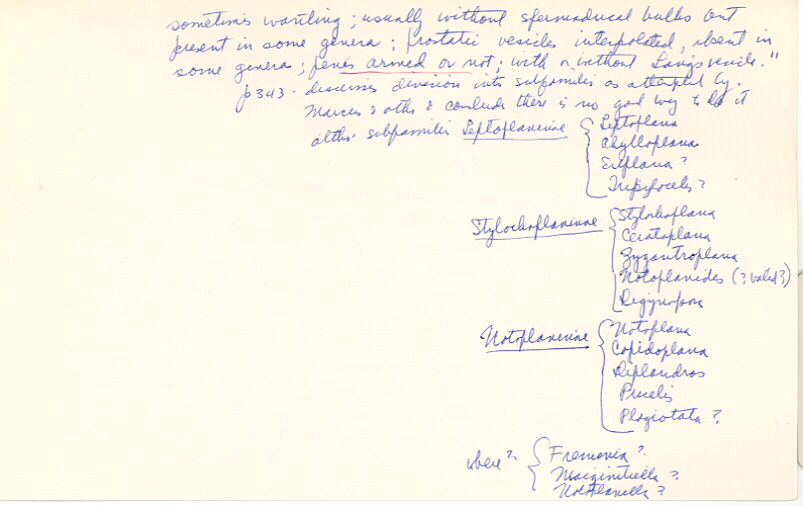 sometimes wanting; usually without spermiducal bulbs but
present in some genera; prostatic vesicles interpolated, absent in
some genera; penis armed or not; with or without Lang's vesicle."
p343 - discusses division into subfamilies as attempted by
Marcus & oths & conclude there is no good way to do it
altho subfamilies Leptoplaninae { Leptoplana
Phylloplana
Euplana ?
Tripylocelis ?
Stylochoplaninae { Stylochoplana
Ceratoplana
Zygantroplana
Notoplanides (? valid ?)
Digynopora
Notoplaninae { Notoplana
Copidoplana
Diplandros
Pucelis
Plagiotata ?
where ? { Freemania ?
Macginitiella ?
Notoplanella ?